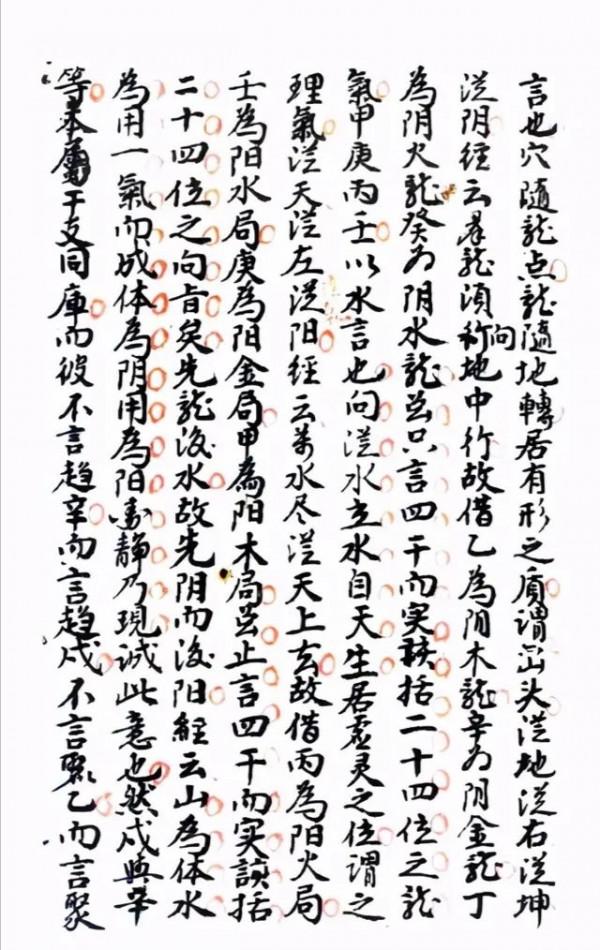 言也穴隨龍点龍隨地轉居有形之质謂峦头從地從右從坤
從阴经云尋龍須向地中行故借乙為阴木龍辛为阴金龍丁
為阴火龍癸为阴水龍兹只言四干而实該括二十四位之龍
氣甲庚丙壬以水言也向從水立水自天生居虚灵之位謂之
理氣從天從左從阳经云葬水尽從天上去故借丙為阳火局
壬為阳水局庚為阳金局甲為阳木局岂止言四干而实該括
二十四位之向旨矣先龍後水故先阴而後阳经云山為体水
為用一氣而成体為阴用為阳動静乃現诚此意也然戌與辛
等本屬干支同庫而彼不言趋辛而言趋戌不言聚乙而言聚